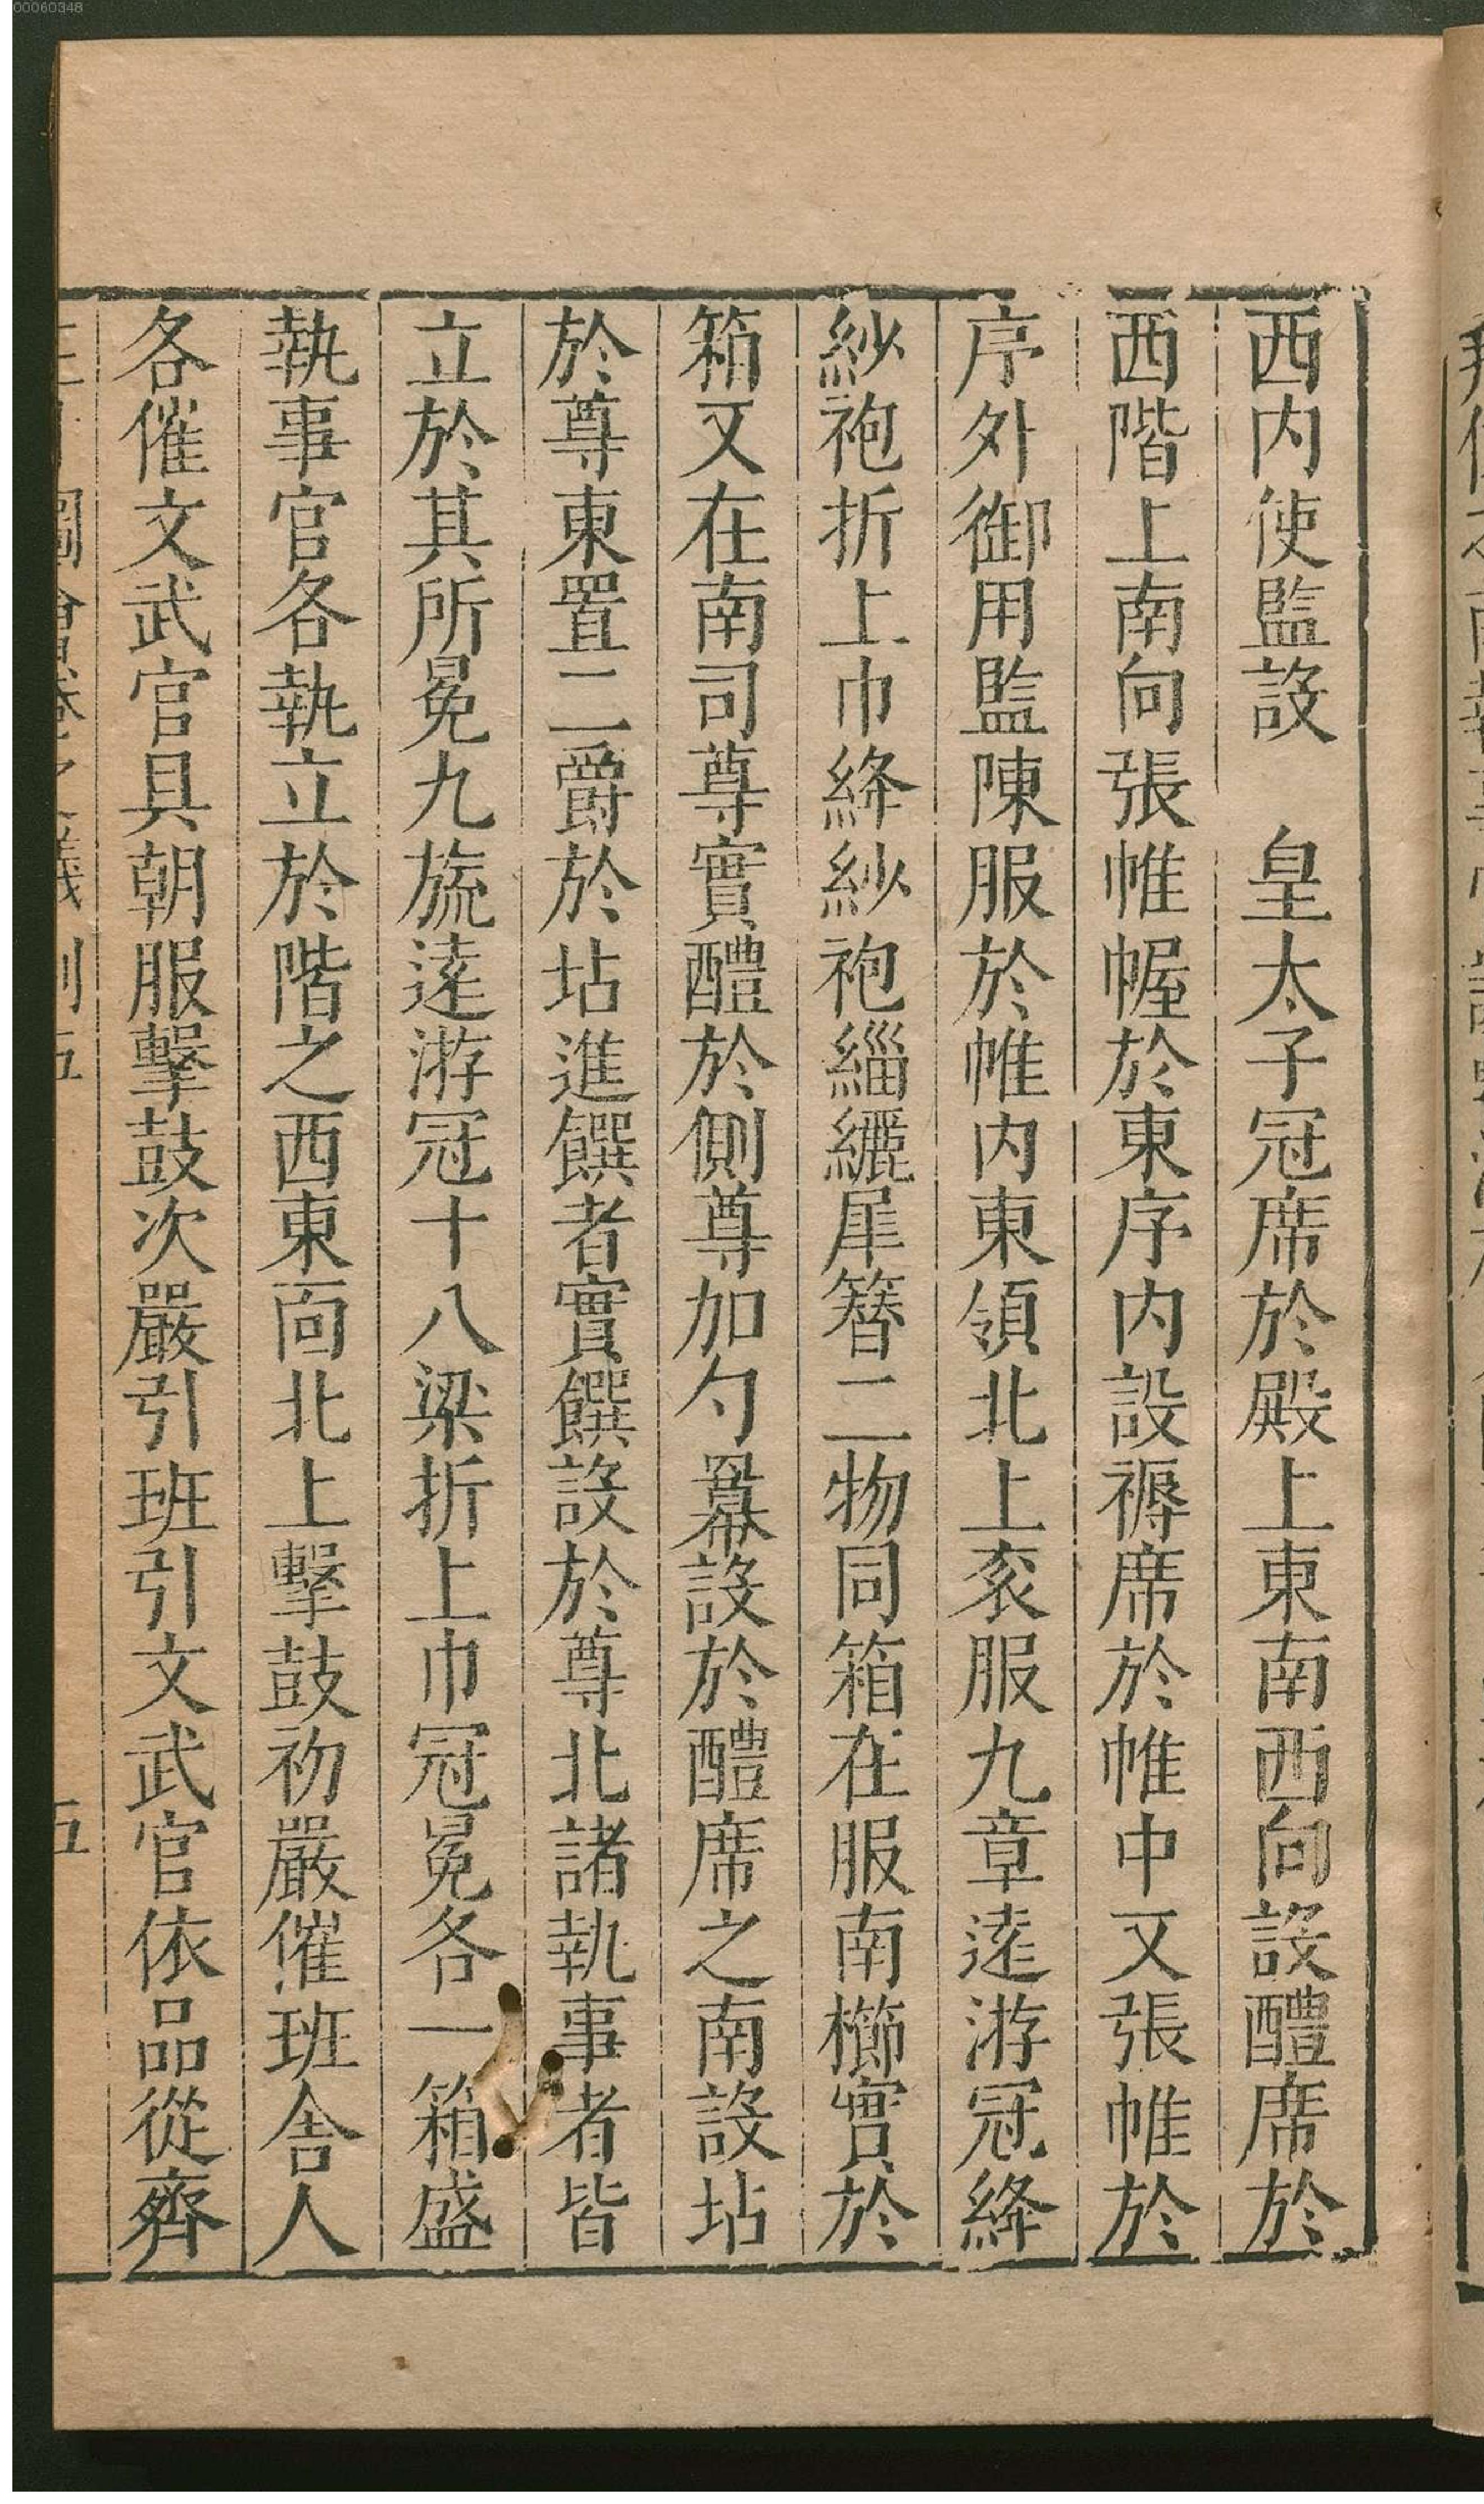 00060348
西内使監設　皇太子冠席於殿上東南西向設醴席於
西階上南向張帷幄於東序内設褥席於帷中又張帷於
序外御用監陳服於帷内東領北上衮服九章遠游冠絳
紗袍折上巾絳紗袍緇纚犀簪二物同箱在服南櫛實於
箱又在南司尊實醴於側尊加勺冪設於醴席之南設坫
於尊東置二爵於坫進饌者實饌設於尊北諸執事者皆
立於其所冕九旒遠游冠十八梁折上巾冠冕各一箱盛
執事官各執立於階之西東面北上擊鼓初嚴催班舍人
各催文武官具朝服擊鼓次嚴引班引文武官依品從齊
圖會卷之儀制五　五